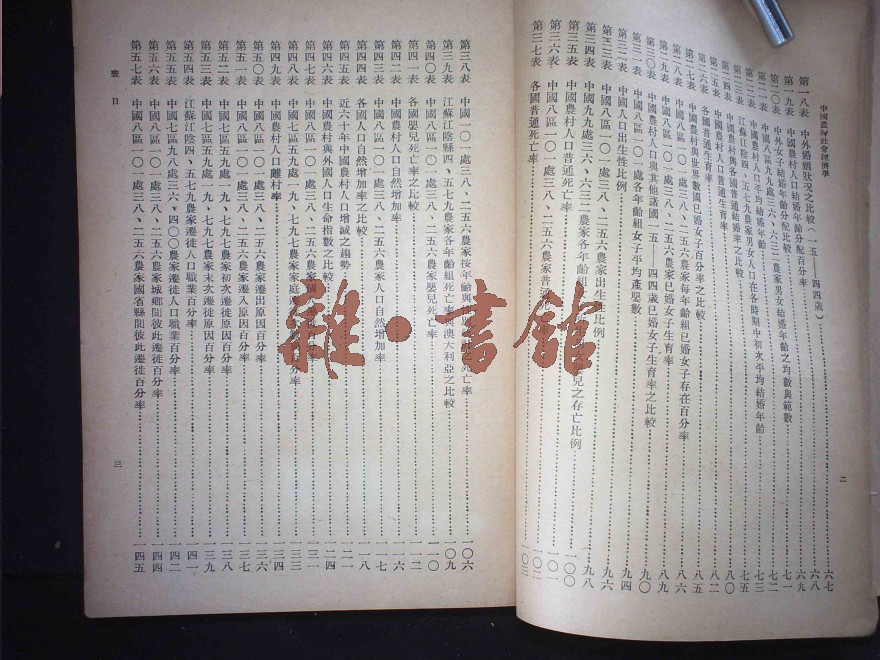 中國農村社會經濟學
第一八表 中外婚姻狀況之比較(一五—四四歲)……六七
第一九表 中國農村人口結婚年齡分配百分率……六八
第二〇表 中外女子結婚年齡分配比較……六九
第二一表 中國八區九九處三六、六三二農家男女結婚年齡之均數與範數……七一
第二二表 中國農村人口平均結婚年齡……七二
第二三表 江蘇江陰四、五七九農家男女人口在各時期中初次平均結婚年齡……七三
第二四表 中國農村與各國普通結婚率之比較……七五
第二五表 中國農村人口普通生育率……八〇
第二六表 各國普通生育率……八二
第二七表 中國農村與世界數國已婚女子百分率之比較……八五
第二八表 中國八區一〇一處三八、二五六農家每年齡組已婚女子存在百分率……八六
第二九表 中國八區一〇一處三八、二五六農家已婚女子生育率……八九
第三〇表 中國農村人口與其他諸國一五—四四歲已婚女子生育率之比較……九〇
第三一表 中國八區一〇一處各年齡組女子平均產嬰數……九四
第三二表 中國人口出生性比例……九六
第三三表 中國八區一〇一處三八、二五六農家出生性比例……九八
第三四表 中國九九處三六、六三二農家各年齡組
兒之存亡比例……一〇〇
第三五表 中國農村人口普通死亡率……一〇一
第三六表 中國八區一〇一處三八、二五六農家普通
……一〇二
第三七表 各國普通死亡率……一〇三
二
第三八表 中國一〇一處三八、二五六農家按年齡與
死亡率……一〇六
第三九表 江蘇江陰四、五七九農家各年齡組死亡率與澳大利亞之比較……一〇九
第四〇表 中國八區一〇一處三八、二五六農家嬰兒死亡率……一一〇
第四一表 各國嬰兒死亡率之比較……一一二
第四二表 中國農村人口自然增加率……一一六
第四三表 中國八區一〇一處三八、二五六農家人口自然增加率……一一七
第四四表 各國人口自然增加率之比較……一一八
第四五表 近六十年中國農村人口增減之趨勢……一二一
第四六表 中國農村與外國人口生命指數之比較……一二四
第四七表 中國八區一〇一處三八、二五六農家個
率……一三一
第四八表 中國七區五九處一九、七九七農家家庭遷
分率
第四九表 中國農村人口離村率……一三四
第五〇表 中國八區一〇一處三八、二五六農家遷出原因百分率……一三六
第五一表 中國八區一〇一處三八、二五六農家遷入原因百分率……一三七
第五二表 中國七區五九處一九、七九七農家初次遷徙原因百分率……一三八
第五三表 中國七區五九處一九、七九七農家末次遷徙原因百分率……一三九
第五四表 江蘇江陰四、五七九農家遷徙人口職業百分率……一四一
第五五表 中國七區九八處三六、四〇〇農家遷徙人口職業百分率……一四二
第五六表 中國八區一〇一處三八、二五六農家城鄉間彼此遷徙百分率……一四四
第五七表 中國八區一〇一處三八、二五六農家國省縣間彼此遷徙百分率……一四五
表目
三
雜·書館